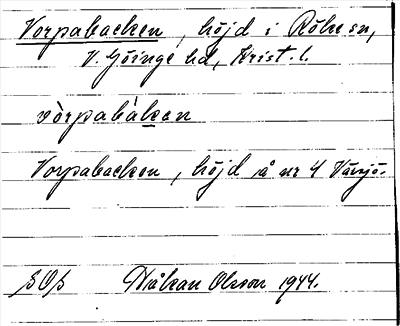 Vorpabacken, höjd i Röke sn,
V. Göinge hd, Krist. l.
vòrpabàkan
Vorpabacken, höjd på nr 4 Växjö.
Håkan Olsson 1944.